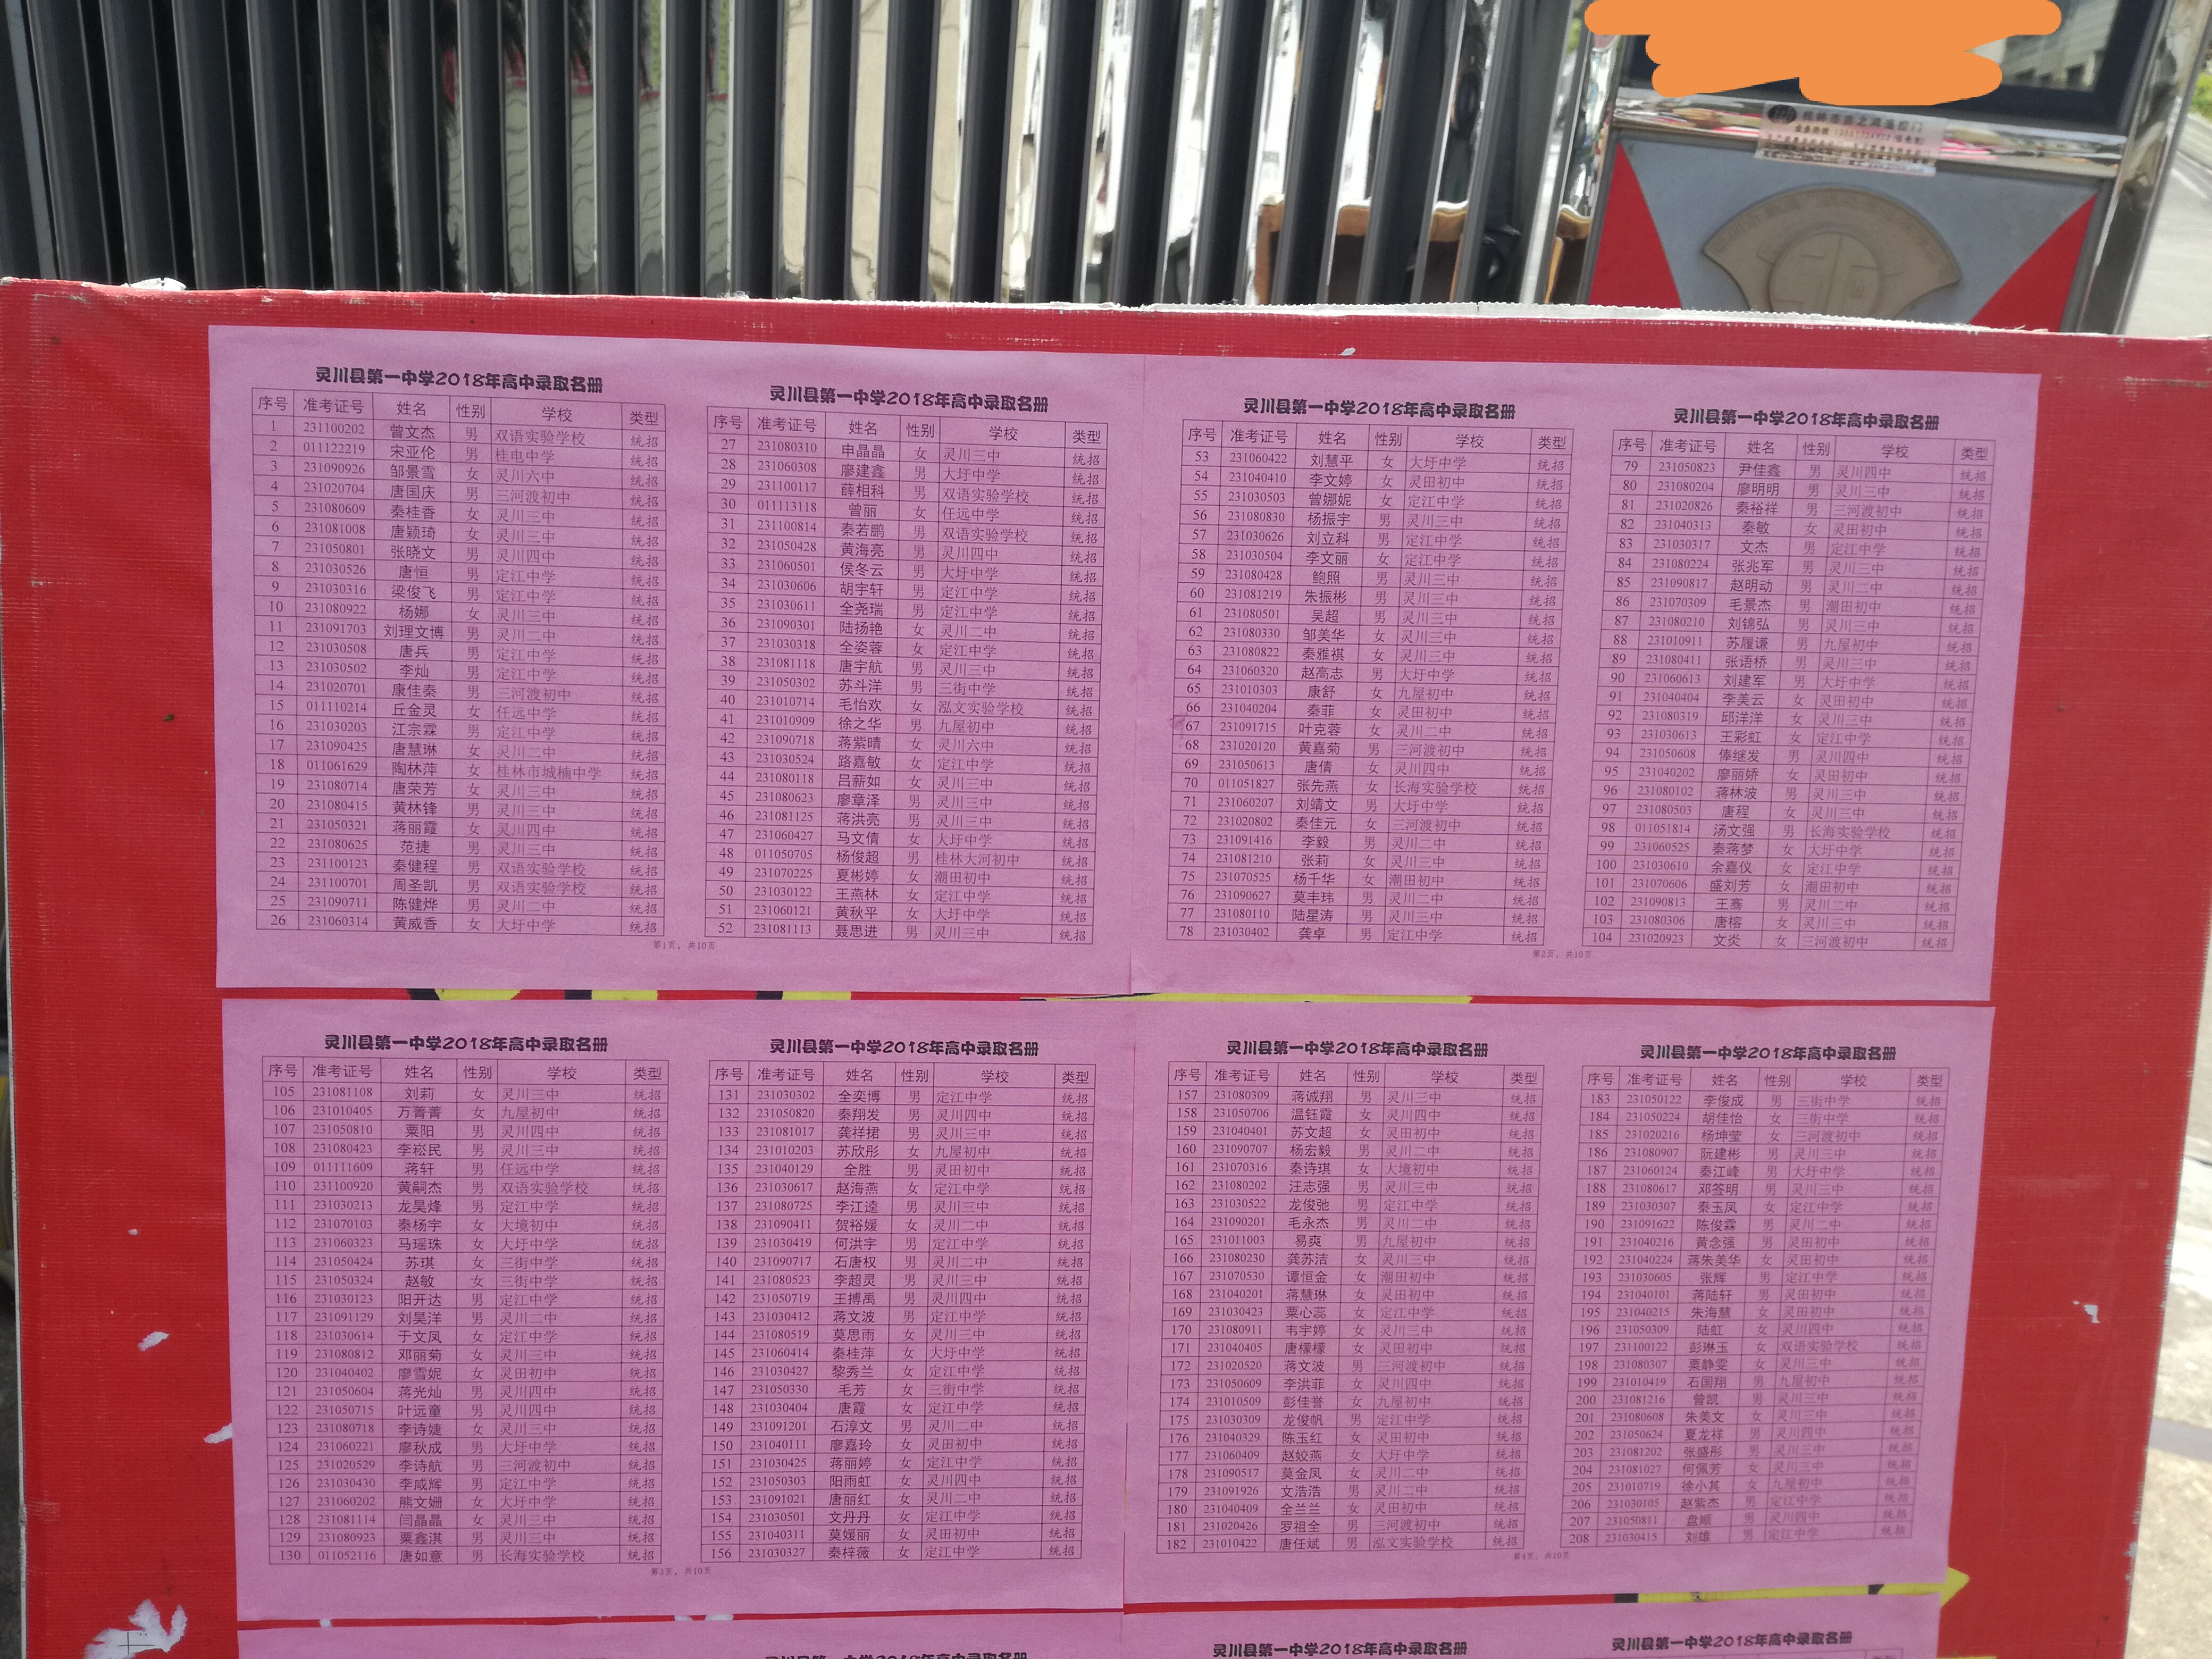 灵川县第一中学2018年高中录取名册
序号 准考证号 姓名 性别 学校 类型
1 231100202 曾文杰 男 双语实验学校 统招
2 011122219 宋亚伦 男 桂电中学 统招
3 231090926 邹景雪 女 灵川六中 统招
4 231020704 唐国庆 男 三河渡初中 统招
5 231080609 秦桂香 女 灵川三中 统招
6 231081008 唐颖琦 女 灵川三中 统招
7 231050801 张晓文 男 灵川四中 统招
8 231030526 唐恒 男 定江中学 统招
9 231030316 梁俊飞 男 定江中学 统招
10 231080922 杨娜 女 灵川三中 统招
11 231091703 刘理文博 男 灵川二中 统招
12 231030508 唐兵 男 定江中学 统招
13 231030502 李灿 男 定江中学 统招
14 231020701 康佳秦 男 三河渡初中 统招
15 011110214 丘金灵 女 任远中学 统招
16 231030203 江宗霖 男 定江中学 统招
17 231090425 唐慧琳 女 灵川二中 统招
18 011061629 陶林萍 女 桂林市城楠中学 统招
19 231080714 唐荣芳 女 灵川三中 统招
20 231080415 黄林锋 男 灵川三中 统招
21 231050321 蒋丽霞 女 灵川四中 统招
22 231080625 范捷 男 灵川三中 统招
23 231100123 秦健程 男 双语实验学校 统招
24 231100701 周圣凯 男 双语实验学校 统招
25 231090711 陈健烨 男 灵川二中 统招
26 231060314 黄威香 女 大圩中学 统招
灵川县第一中学2018年高中录取名册
序号 准考证号 姓名 性别 学校 类型
27 231080310 申晶晶 女 灵川三中 统招
28 231060308 廖建鑫 男 大圩中学 统招
29 231100117 薛相科 男 双语实验学校 统招
30 011113118 曾丽 女 任远中学 统招
31 231100814 秦若鹏 男 双语实验学校 统招
32 231050428 黄海亮 男 灵川四中 统招
33 231060501 侯冬云 男 大圩中学 统招
34 231030606 胡宇轩 男 定江中学 统招
35 231030611 全尧瑞 男 定江中学 统招
36 231090301 陆扬艳 女 灵川二中 统招
37 231030318 全姿蓉 女 定江中学 统招
38 231081118 唐宇航 男 灵川三中 统招
39 231050302 苏斗洋 男 三街中学 统招
40 231010714 毛怡欢 女 泓文实验学校 统招
41 231010909 徐之华 男 九屋初中 统招
42 231090718 蒋紫晴 女 灵川六中 统招
43 231030524 路嘉敏 女 定江中学 统招
44 231080118 吕薪如 女 灵川三中 统招
45 231080623 廖章泽 男 灵川三中 统招
46 231081125 蒋洪亮 男 灵川三中 统招
47 231060427 马文倩 女 大圩中学 统招
48 011050705 杨俊超 男 桂林大河初中 统招
49 231070225 夏彬婷 女 潮田初中 统招
50 231030122 王燕林 女 定江中学 统招
51 231060121 黄秋平 女 大圩中学 统招
52 231081113 聂思进 男 灵川三中 统招
第1页，共10页
灵川县第一中学2018年高中录取名册
序号 准考证号 姓名 性别 学校 类型
53 231060422 刘慧平 女 大圩中学 统招
54 231040410 李文婷 女 灵田初中 统招
55 231030503 曾娜妮 女 定江中学 统招
56 231080830 杨振宇 男 灵川三中 统招
57 231030626 刘立科 男 定江中学 统招
58 231030504 李文丽 女 定江中学 统招
59 231080428 鲍照 男 灵川三中 统招
60 231081219 朱振彬 男 灵川三中 统招
61 231080501 吴超 男 灵川三中 统招
62 231080330 邹美华 女 灵川三中 统招
63 231080822 秦雅祺 女 灵川三中 统招
64 231060320 赵高志 男 大圩中学 统招
65 231010303 康舒 女 九屋初中 统招
66 231040204 秦菲 女 灵田初中 统招
67 231091715 叶克蓉 女 灵川二中 统招
68 231020120 黄嘉菊 男 三河渡初中 统招
69 231050613 唐倩 女 灵川四中 统招
70 011051827 张先燕 女 长海实验学校 统招
71 231060207 刘靖文 男 大圩中学 统招
72 231020802 秦佳元 女 三河渡初中 统招
73 231091416 李毅 男 灵川二中 统招
74 231081210 张莉 女 灵川三中 统招
75 231070525 杨千华 女 潮田初中 统招
76 231090627 莫丰玮 男 灵川二中 统招
77 231080110 陆星涛 男 灵川三中 统招
78 231030402 龚卓 男 定江中学 统招
灵川县第一中学2018年高中录取名册
序号 准考证号 姓名 性别 学校 类型
79 231050823 尹佳鑫 男 灵川四中 统招
80 231080204 廖明明 男 灵川三中 统招
81 231020826 秦裕祥 男 三河渡初中 统招
82 231040313 秦敏 女 灵田初中 统招
83 231030317 文杰 男 定江中学 统招
84 231080224 张兆军 男 灵川三中 统招
85 231090817 赵明动 男 灵川二中 统招
86 231070309 毛景杰 男 潮田初中 统招
87 231080210 刘锦弘 男 灵川三中 统招
88 231010911 苏履谦 男 九屋初中 统招
89 231080411 张语桥 男 灵川三中 统招
90 231060613 刘建军 男 大圩中学 统招
91 231040404 李美云 女 灵田初中 统招
92 231080319 邱洋洋 女 灵川三中 统招
93 231030613 王彩虹 女 定江中学 统招
94 231050608 俸继发 男 灵川四中 统招
95 231040202 廖丽娇 女 灵田初中 统招
96 231080102 蒋林波 男 灵川三中 统招
97 231080503 唐程 女 灵川三中 统招
98 011051814 汤文强 男 长海实验学校 统招
99 231060525 秦蒋梦 女 大圩中学 统招
100 231030610 余嘉仪 女 定江中学 统招
101 231070606 盛刘芳 女 潮田初中 统招
102 231090813 王骞 男 灵川二中 统招
103 231080306 唐榕 女 灵川三中 统招
104 231020923 文炎 女 三河渡初中 统招
第2页，共10页
灵川县第一中学2018年高中录取名册
序号 准考证号 姓名 性别 学校 类型
105 231081108 刘莉 女 灵川三中 统招
106 231010405 万菁菁 女 九屋初中 统招
107 231050810 粟阳 男 灵川四中 统招
108 231080423 李崧民 男 灵川三中 统招
109 011111609 蒋轩 男 任远中学 统招
110 231100920 黄嗣杰 男 双语实验学校 统招
111 231030213 龙昊烽 男 定江中学 统招
112 231070103 秦杨宇 女 大境初中 统招
113 231060323 马瑶珠 女 大圩中学 统招
114 231050424 苏琪 女 三街中学 统招
115 231050324 赵敏 女 三街中学 统招
116 231030123 阳开达 男 定江中学 统招
117 231091129 刘昊洋 男 灵川二中 统招
118 231030614 于文凤 女 定江中学 统招
119 231080812 邓丽菊 女 灵川三中 统招
120 231040402 廖雪妮 女 灵田初中 统招
121 231050604 蒋光灿 男 灵川四中 统招
122 231050715 叶远童 男 灵川四中 统招
123 231080718 李诗婕 女 灵川三中 统招
124 231060221 廖秋成 男 大圩中学 统招
125 231020529 李诗航 男 三河渡初中 统招
126 231030430 李咸辉 男 定江中学 统招
127 231060202 熊文姗 女 大圩中学 统招
128 231081114 闫晶晶 女 灵川三中 统招
129 231080923 粟鑫淇 男 灵川三中 统招
130 011052116 唐如意 男 长海实验学校 统招
灵川县第一中学2018年高中录取名册
序号 准考证号 姓名 性别 学校 类型
131 231030302 全奕博 男 定江中学 统招
132 231050820 秦翔发 男 灵川四中 统招
133 231081017 龚祥捃 男 灵川三中 统招
134 231010203 苏欣彤 女 九屋初中 统招
135 231040129 全胜 男 灵田初中 统招
136 231030617 赵海燕 女 定江中学 统招
137 231080725 李江逵 男 灵川三中 统招
138 231090411 贺裕媛 女 灵川二中 统招
139 231030419 何洪宇 男 定江中学 统招
140 231090717 石唐权 男 灵川二中 统招
141 231080523 李超灵 男 灵川三中 统招
142 231050719 王搏禹 男 灵川四中 统招
143 231030412 蒋文波 男 定江中学 统招
144 231080519 莫思雨 女 灵川三中 统招
145 231060414 秦桂萍 女 大圩中学 统招
146 231030427 黎秀兰 女 定江中学 统招
147 231050330 毛芳 女 三街中学 统招
148 231030404 唐霞 女 定江中学 统招
149 231091201 石淳文 男 灵川二中 统招
150 231040111 廖嘉玲 女 灵田初中 统招
151 231030425 蒋丽婷 女 定江中学 统招
152 231050303 阳雨虹 女 灵川四中 统招
153 231091021 唐丽红 女 灵川二中 统招
154 231030501 文丹丹 女 定江中学 统招
155 231040311 莫媛丽 女 灵田初中 统招
156 231030327 秦梓薇 女 定江中学 统招
第3页，共10页
灵川县第一中学2018年高中录取名册
序号 准考证号 姓名 性别 学校 类型
157 231080309 蒋诚翔 男 灵川三中 统招
158 231050706 温钰霞 女 灵川四中 统招
159 231040401 苏文超 女 灵田初中 统招
160 231090707 杨宏毅 男 灵川二中 统招
161 231070316 秦诗琪 女 大境初中 统招
162 231080202 汪志强 男 灵川三中 统招
163 231030522 龙俊弛 男 定江中学 统招
164 231090201 毛永杰 男 灵川二中 统招
165 231011003 易爽 男 九屋初中 统招
166 231080230 龚苏洁 女 灵川三中 统招
167 231070530 谭恒金 女 潮田初中 统招
168 231040201 蒋慧琳 女 灵田初中 统招
169 231030423 粟心蕊 女 定江中学 统招
170 231080911 韦宇婷 女 灵川三中 统招
171 231040405 唐檬檬 女 灵田初中 统招
172 231020520 蒋文波 男 三河渡初中 统招
173 231050609 李洪菲 女 灵川四中 统招
174 231010509 彭佳誉 女 九屋初中 统招
175 231030309 龙俊帆 男 定江中学 统招
176 231040329 陈玉红 女 灵田初中 统招
177 231060409 赵姣燕 女 大圩中学 统招
178 231090517 莫金凤 女 灵川二中 统招
179 231091926 文浩浩 男 灵川二中 统招
180 231040409 全兰兰 女 灵田初中 统招
181 231020426 罗祖全 男 三河渡初中 统招
182 231010422 唐任斌 男 泓文实验学校 统招
灵川县第一中学2018年高中录取名册
序号 准考证号 姓名 性别 学校 类型
183 231050122 李俊成 男 三街中学 统招
184 231050224 胡佳怡 女 三街中学 统招
185 231020216 杨坤莹 女 三河渡初中 统招
186 231080907 阮建彬 男 灵川三中 统招
187 231060124 秦江峰 男 大圩中学 统招
188 231080617 邓签明 男 灵川三中 统招
189 231030307 秦玉凤 女 定江中学 统招
190 231091622 陈俊霖 男 灵川二中 统招
191 231040216 黄念强 男 灵田初中 统招
192 231040224 蒋朱美华 女 灵田初中 统招
193 231030605 张辉 男 定江中学 统招
194 231040101 蒋陆轩 男 灵田初中 统招
195 231040215 朱海慧 女 灵田初中 统招
196 231050309 陆虹 女 灵川四中 统招
197 231100122 彭琳玉 女 双语实验学校 统招
198 231080307 粟静雯 女 灵川三中 统招
199 231010419 石国翔 男 九屋初中 统招
200 231081216 曾凯 男 灵川三中 统招
201 231080608 朱美文 女 灵川三中 统招
202 231050624 夏龙祥 男 灵川四中 统招
203 231081202 张盛彤 男 灵川三中 统招
204 231081027 何佩芳 女 灵川三中 统招
205 231010719 徐小其 女 九屋初中 统招
206 231030105 赵紫杰 男 定江中学 统招
207 231050811 盘顺 男 灵川四中 统招
208 231030415 刘雄 男 定江中学 统招
第4页，共10页
灵川县第一中学2018年高中录取名册
灵川县第一中学2018年高中录取名册
灵川县第一中学2018年高中录取名册